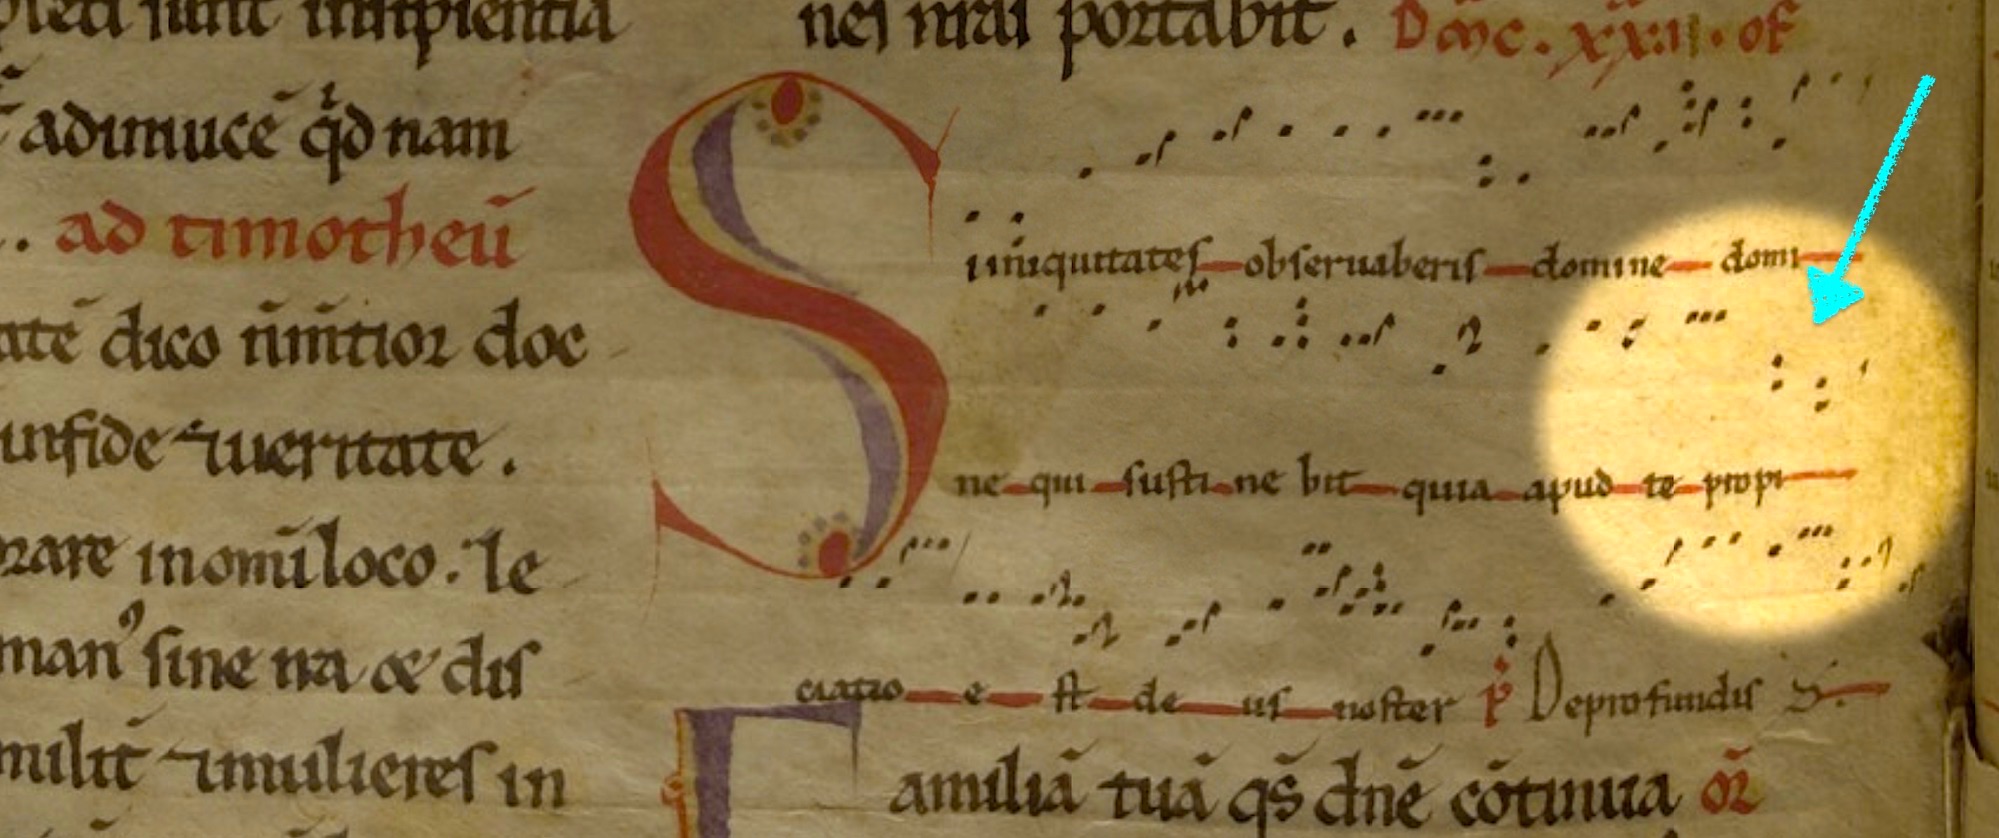 adinuicē q̄d nam
. ad timotheū
ate dico n̄ m̄tior doc
infide ⁊ ueritate .
orare inom̄i loco . Je
man⁹ sine ira & dis
militˀ ⁊ mulieres in
nes n̄rās portabit . Dn̄ic . xxii . of
S iniquitates obseruaberis domine domi
ne qui susti ne bit quia apud te propi
ciatio e st de us noster p̄ De profundis S.
F amiliā tuā qs̄ dn̄e cōtinua or̄